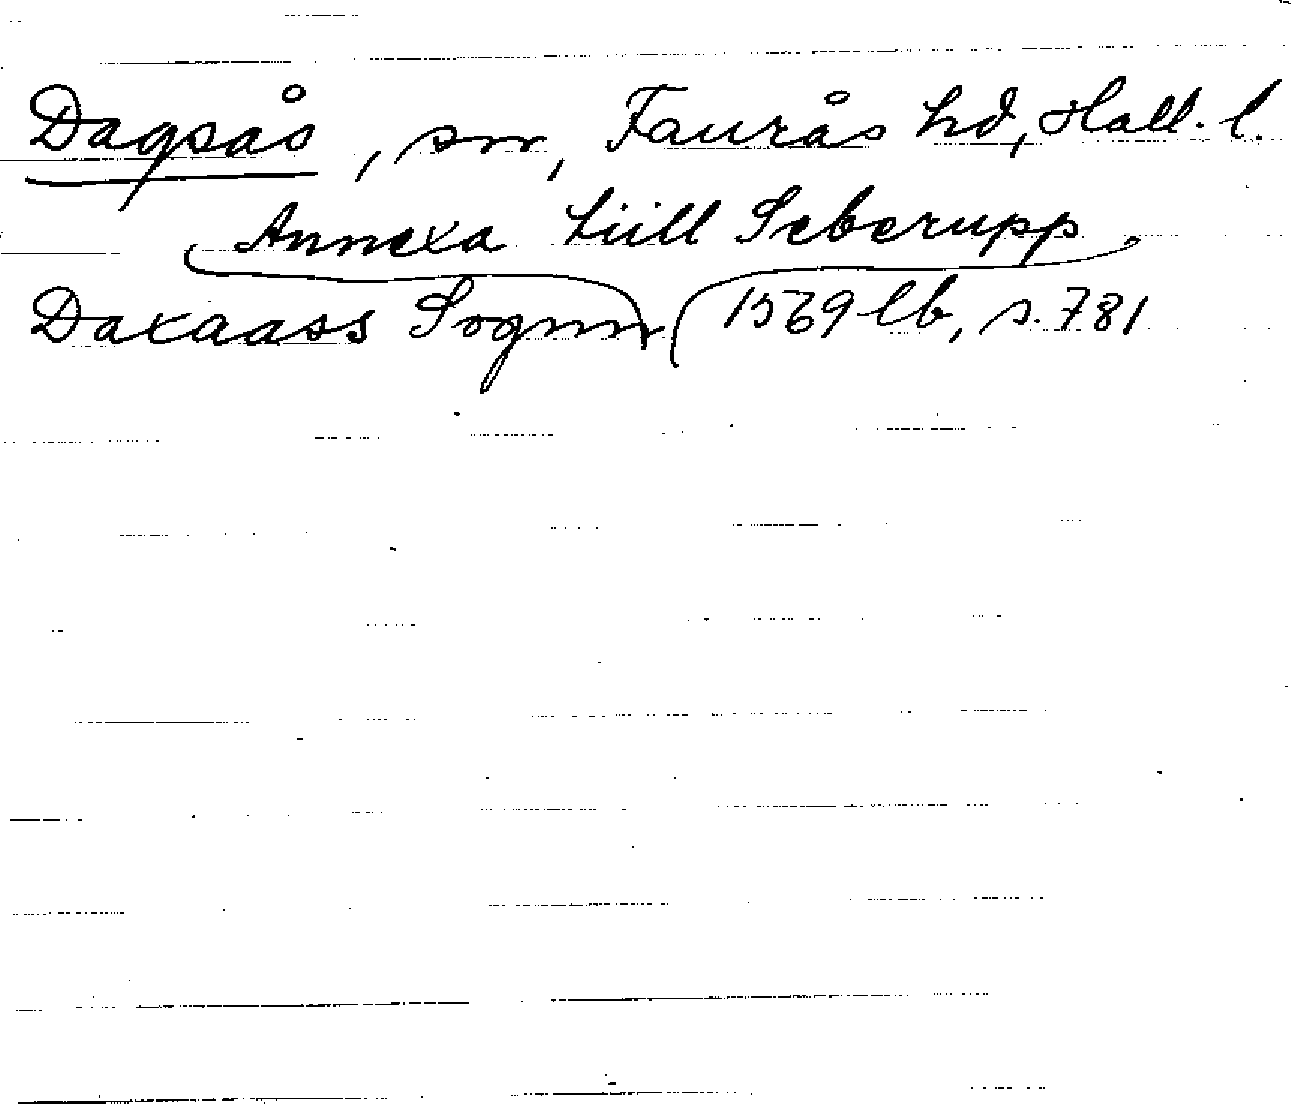 Dagsås, sn, Faurås hd, Hall. l.
Annexa tiill Seberupp
Daxaass Sognn 1569 lb, s. 781